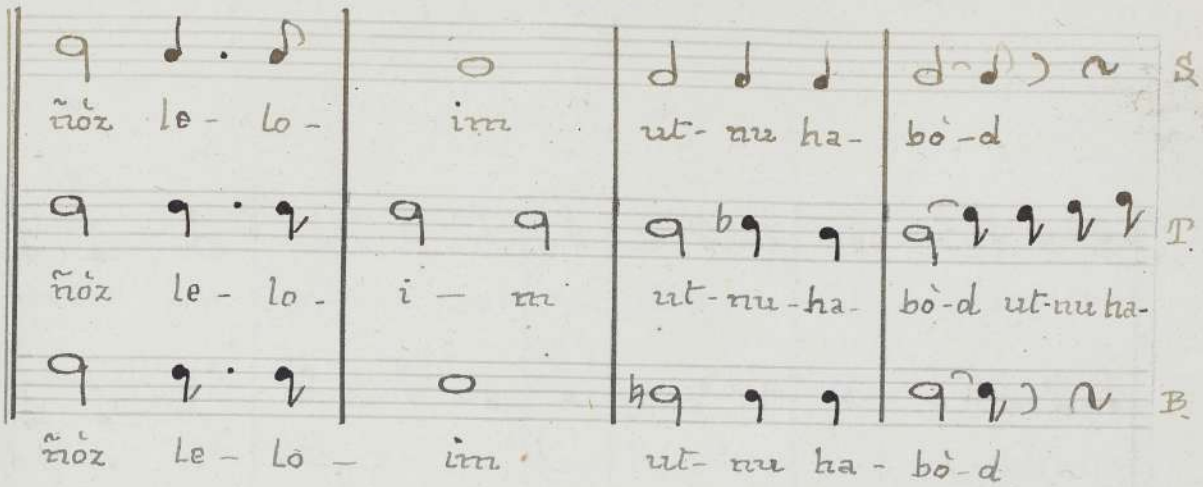 S.
ñòz le - lo - im ut - nu ha - bò - d
T.
ñòz le - lo - i — m ut - nu - ha - bò - d ut - nu ha -
B.
ñòz le - lo — im ut - nu ha - bò - d